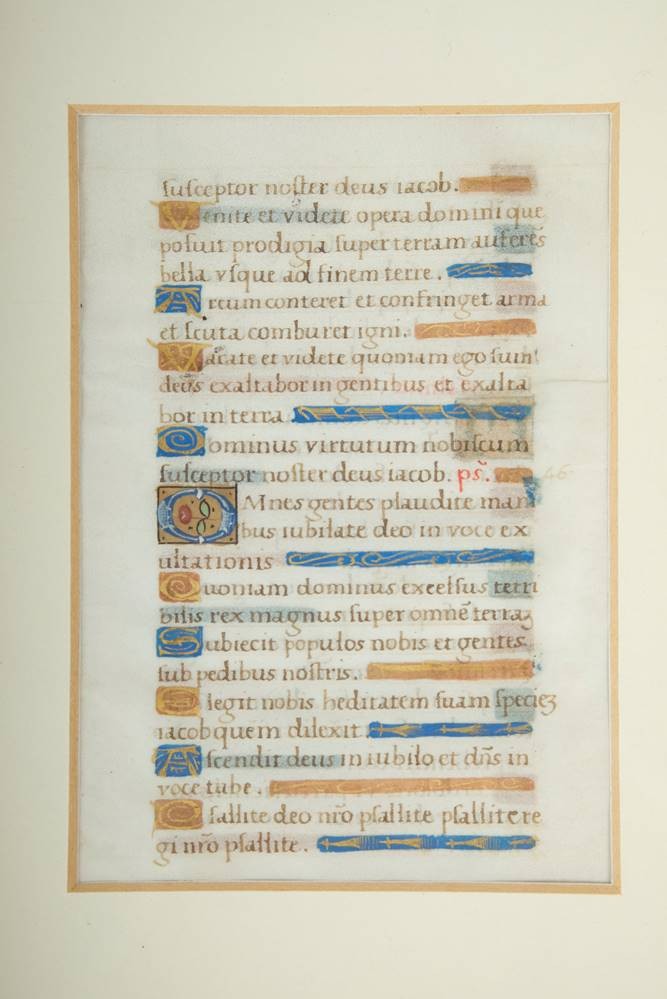 susceptor noster deus iacob.
Venite et videte opera domini que
posuit prodigia super terram auferēs
bella vsque ad finem terre.
Arcum conteret et confringet arma
et scuta comburet igni.
Vacate et videte quoniam ego sum
deus exaltabor in gentibus et exalta
bor in terra
Dominus virtutum nobiscum
susceptor noster deus iacob. ps̄. 46
OMnes gentes plaudite mani
bus iubilate deo in voce ex
ultationis
Quoniam dominus excelsus terri
bilis rex magnus super omnē terraz
Subiecit populos nobis et gentes
sub pedibus nostris.
Elegit nobis heditatem suam speciez
iacob quem dilexit
Ascendit deus in iubilo et dn̄s in
voce tube.
Psallite deo nr̄o psallite psallite re
gi nr̄o psallite.